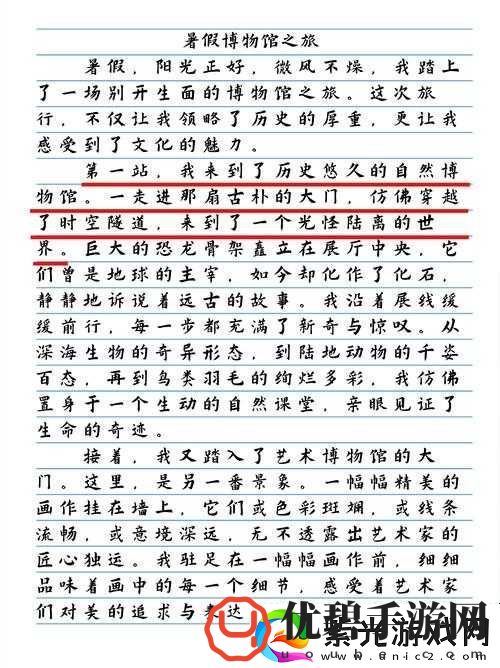 暑假博物馆之旅
暑假，阳光正好，微风不燥，我踏上
了一场别开生面的博物馆之旅。这次旅
行，不仅让我领略了历史的厚重，更让我
感受到了文化的魅力。
第一站，我来到了历史悠久的自然博
物馆。一走进那扇古朴的大门，仿佛穿越
了时空隧道，来到了一个光怪陆离的世
界。巨大的恐龙骨架矗立在展厅中央，它
们曾是地球的主宰，如今却化作了化石，
静静地诉说着远古的故事。我沿着展线缓
缓前行，每一步都充满了新奇与惊叹。从
深海生物的奇异形态，到陆地动物的千姿
百态，再到鸟类羽毛的绚烂多彩，我仿佛
置身于一个生动的自然课堂，亲眼见证了
生命的奇迹。
接着，我又踏入了艺术博物馆的大
门。这里，是另一番景象。一幅幅精美的
画作挂在墙上，它们或色彩斑斓，或线条
流畅，或意境深远，无不透露出艺术家的
匠心独运。我驻足在一幅幅画作前，细细
品味着画中的每一个细节，感受着艺术家
们对美的追求与表达
优碧手游网
紫光游戏网